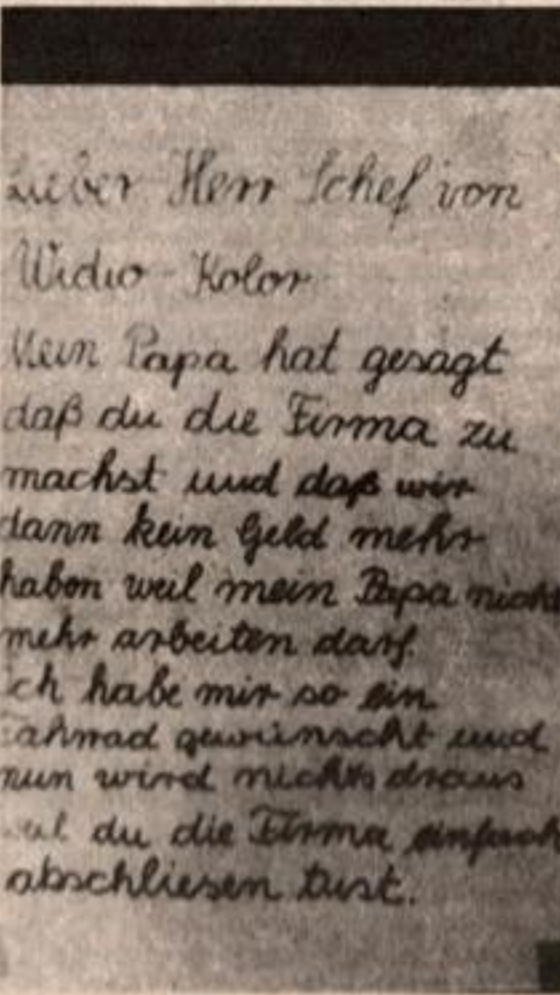 Lieber Herr Schef von
Widio-Kolor
Mein Papa hat gesagt
daß du die Firma zu
machst und daß wir
dann kein Geld mehr
habon weil mein Papa nicht
mehr arbeiten darf.
Ich habe mir so ein
Fahrrad gewünscht und
nun wird nichts draus
weil du die Firma einfach
abschliesen tust.